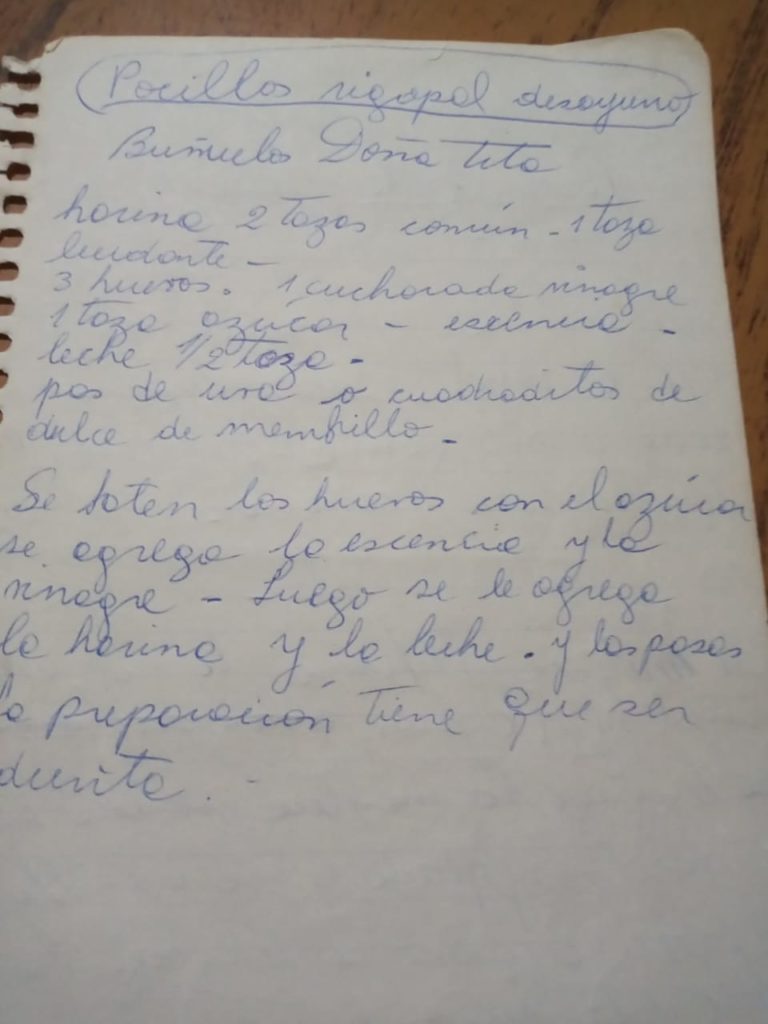 Pocillos rigopal desayuno
Buñuelos Doña Tita
harina 2 tazas común - 1 taza
leudante -
3 huevos. 1 cucharada vinagre
1 taza azúcar - escencia -
leche 1/2 taza -
pas de uva o cuadraditos de
dulce de membrillo. -
Se baten los huevos con el azúcar
se agrega la escencia y la
vinagre - Luego se le agrega
la harina y la leche. y las pasas
la preparación tiene que ser
durita. -